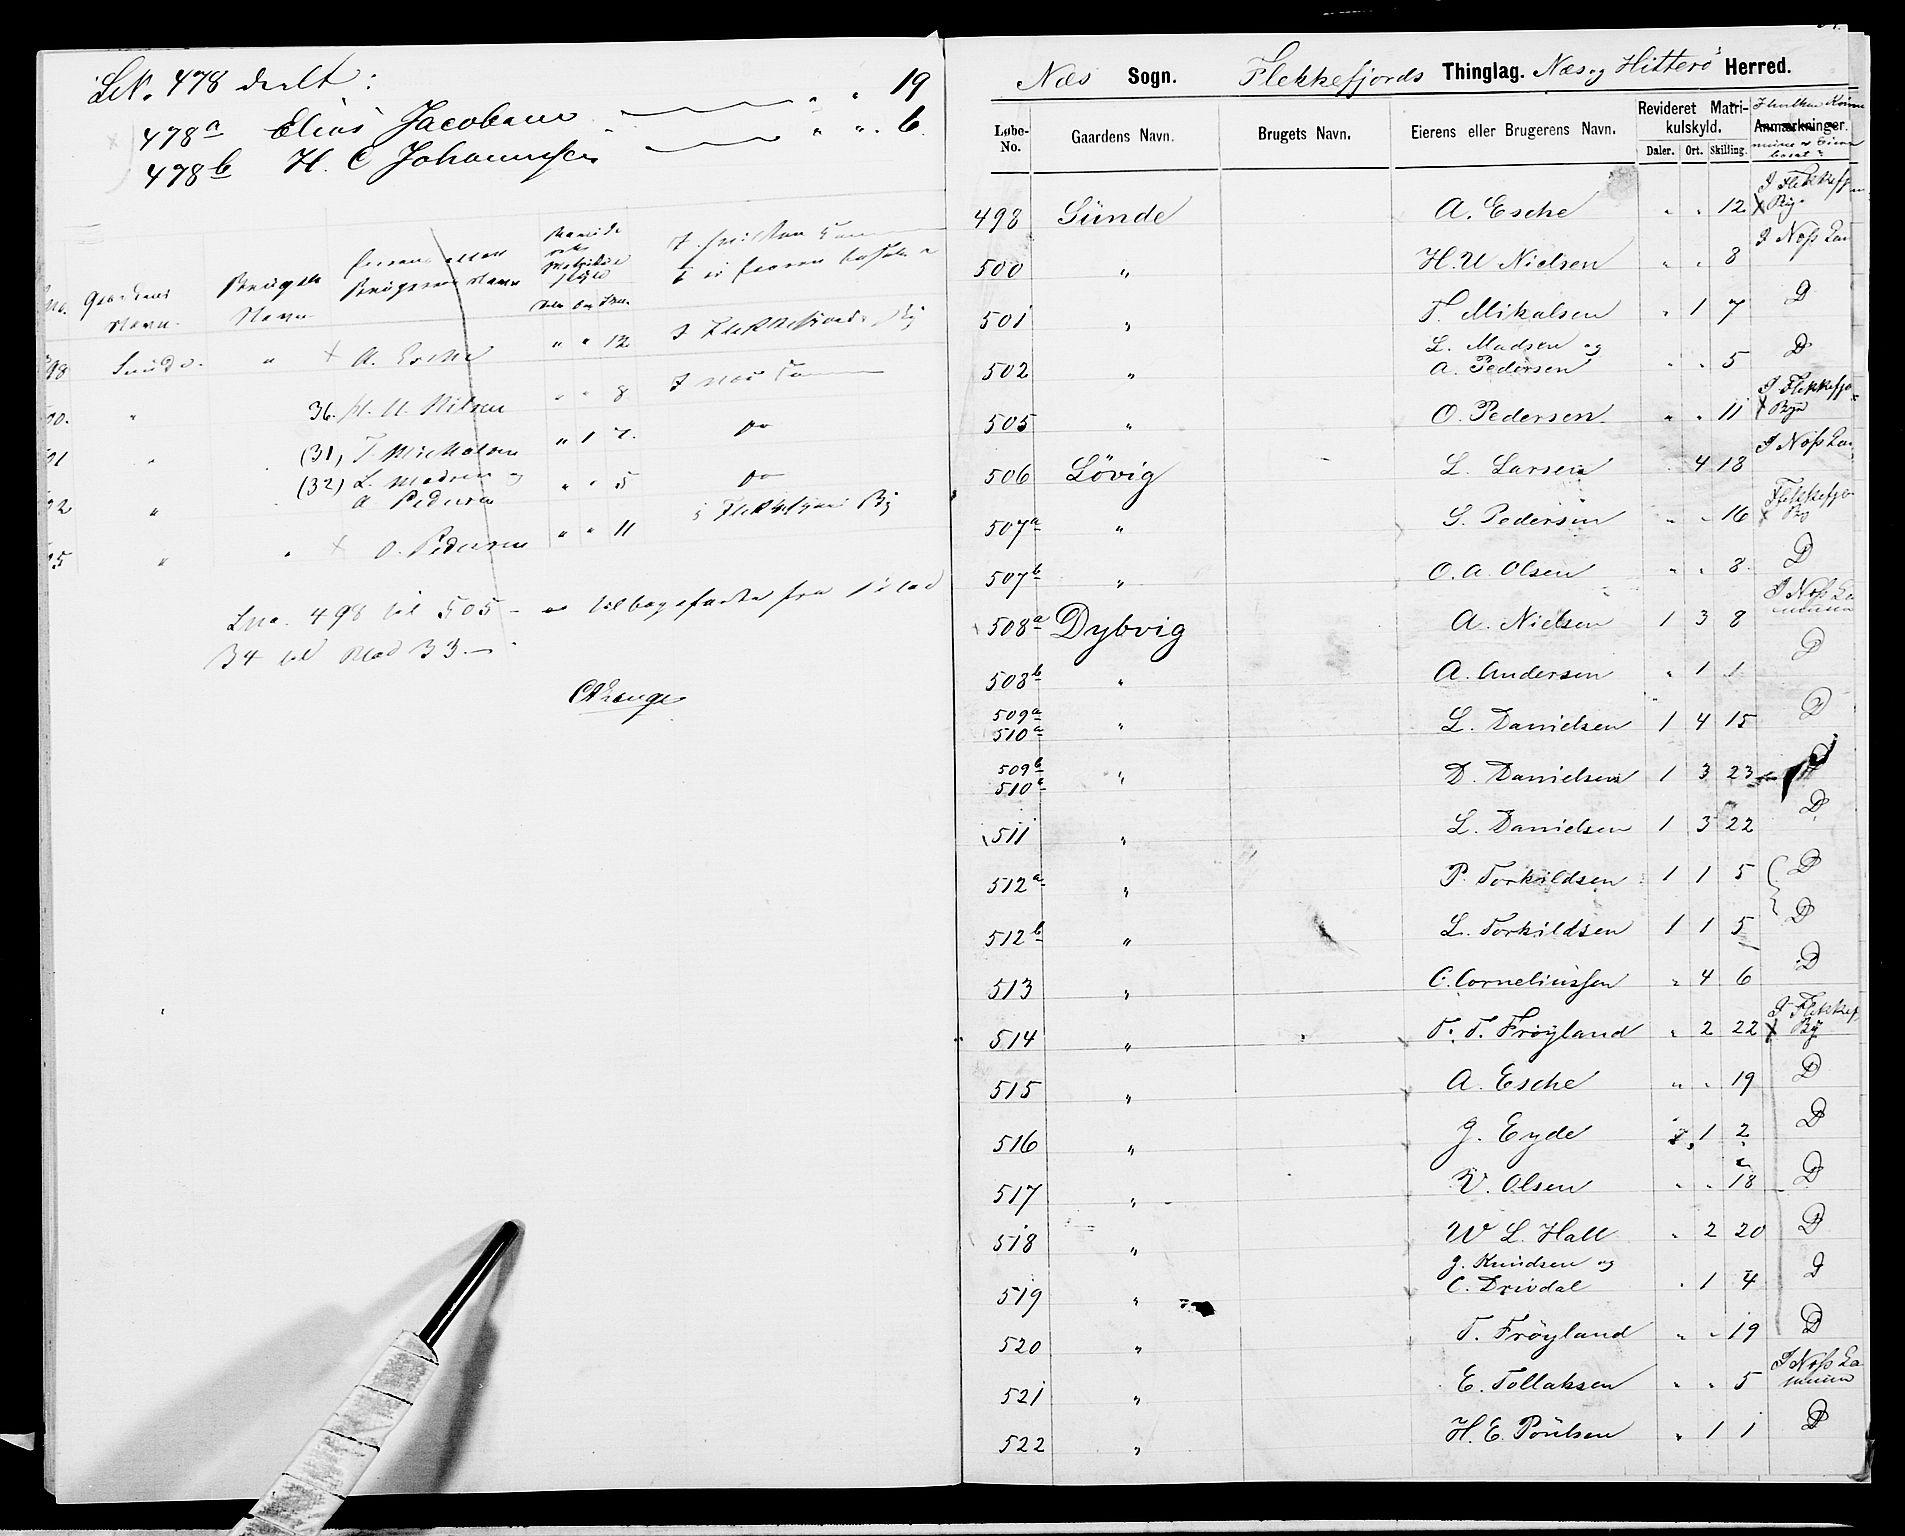 LN. 478 deelt:
478a Elias Jacobsen " " 19
478b H. C Johannesen " " 6
No. Gaardens Navn. Brugets Navn Eierens eller Brugerens Navn Daler Ort Skill.
98 Sunde " + A. Esche " " 12 I Flekkefjords By
00. " 36. H. U. Nilsen " " 8 I Nes
01 " (31) T Mickalsen " 1 7. Do
02 " (32) L. Madsen og A Pedersen " " 5 Do
05 " " + O. Pedersen " " 11 i Flekkefjord By
Lno. 498 til 505 - er tilbageførte fra Blad
34 til Blad 33.
Næs Sogn. Flekkefjords Thinglag. Næs og Hitterö Herred.
Løbe-No. Gaardens Navn. Brugets Navn. Eierens eller Brugerens Navn. Revideret Matrikulskyld. Daler. Ort. Skilling. Anmærkninger.
498 Sünde A. Esche " " 12 I Flekkefj By
500 " H. U Nielsen " " 8 I Næs
501 " T. Mikalsen " 1 7 D
502 " L. Madsen og A. Pedersen " " 5 D
505 " O. Pedersen " " 11 I Flekkefjo By
506 Lövig L. Larsen " 4 18 I Næs
507a " S. Pedersen " " 16 Flekkefjo By
507b " O. A. Olsen " " 8 D
508a Dybvig A. Nielsen 1 3 8 I Næs
508b " A. Andersen " 1 1 D
509a 510a " L. Danielsen 1 4 15 D
509b 510b " D. Danielsen 1 3 23 D
511 " L. Danielsen 1 3 22 D
512a " P. Torkildsen 1 1 5 D
512b " L. Torkildsen 1 1 5 D
513 " C. Corneliussen " 4 6 D
514 " T. T. Fröyland " 2 22 I Flekkef By
515 " A. Esche " " 19 D
516 " J. Eyde " 1 2 D
517 " V. Olsen " " 18 D
518 " W L. Hall " 2 20 D
519 " J. Knudsen og C. Drivdal " 1 4 D
520 " T. Fröyland " " 19 D
521 " E. Tollaksen " " 5 I Næs
522 " H. E. Poülsen " 1 1 D